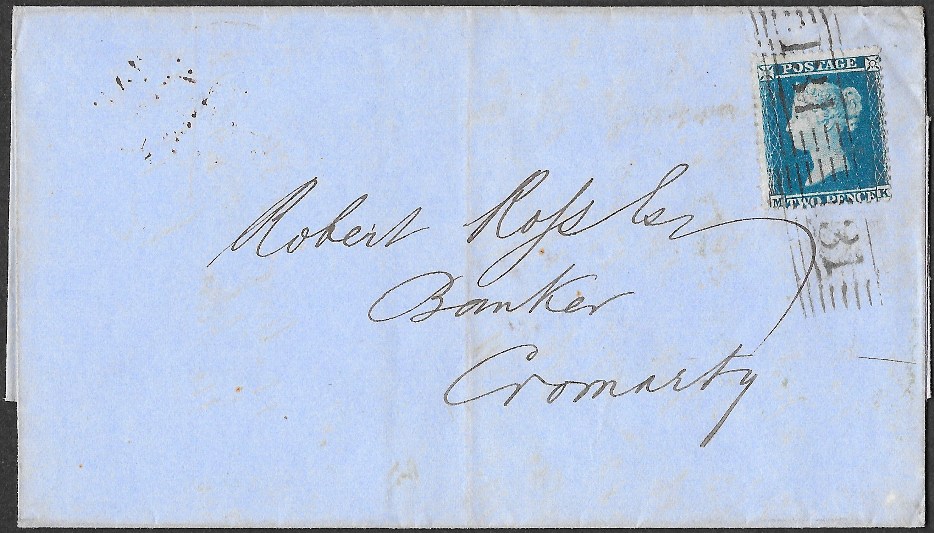 POSTAGE
M TWO PENCE K
31
Robert Roſs Esqr
Banker
Cromarty